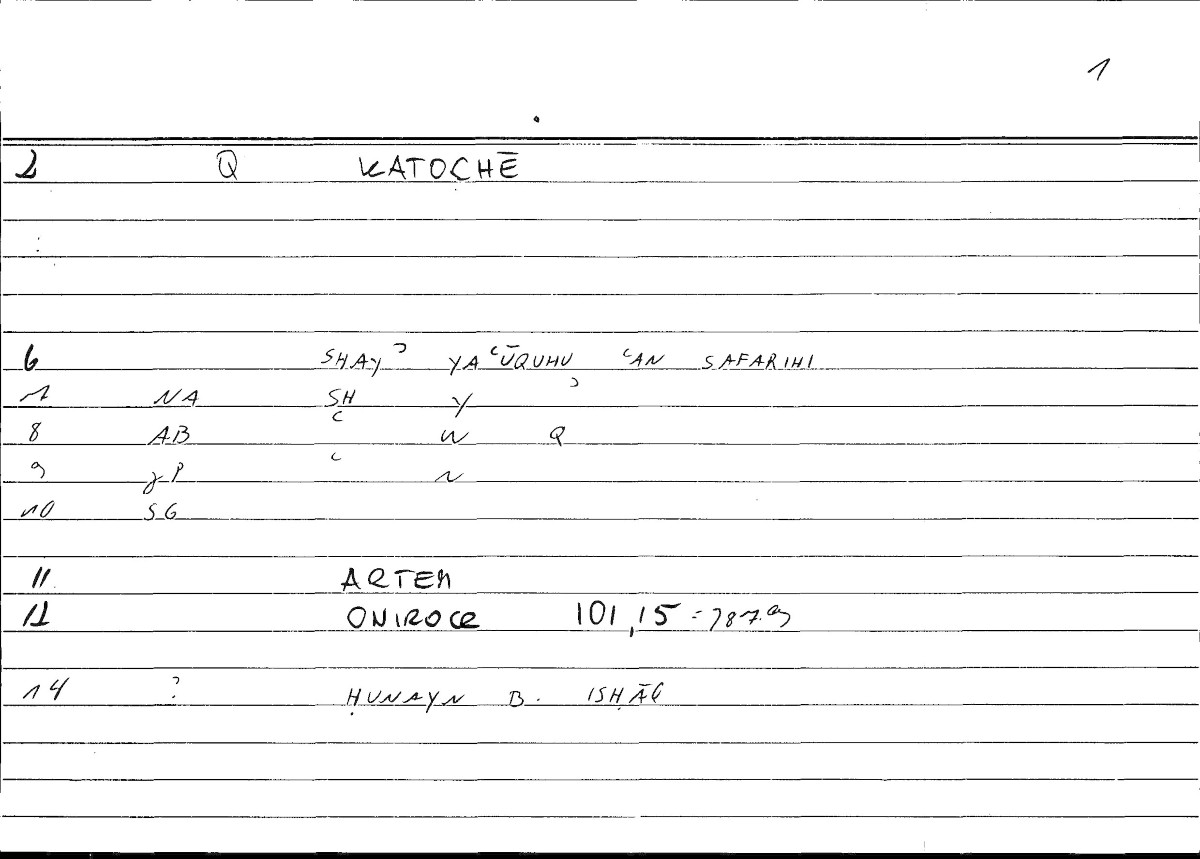 1
2 Q KATOCHĒ
6 SHAYʾ YAʿŪQUHU ʿAN SAFARIHI
7 NA SH Y ʾ
8 AB ʿ W Q
9 gP ʿ N
10 SG
11 ARTEM
12 ONIROCR 101,15 = 187.9
14 ? ḤUNAYN B. ISḤĀQ